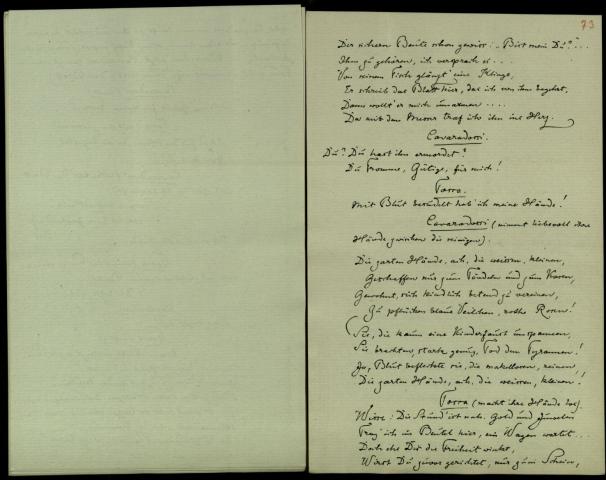 73
Der sichern Beute schon gewiss: „Bist mein Du?"...
Ihm zu gehören, ich versprach es...
Von seinem Tisch glänzt eine Klinge,
Er schrieb das Blatt hier, das ich von ihm begehrt,
Dann wollt' er mich umarmen....
Da mit dem Messer traf ich ihn ins Herz.
Cavaradossi.
Du? Du hast ihn ermordet?
Du Fromme, Gütige, für mich!
Tosca.
Mit Blut besudelt hab' ich meine Hände!
Cavaradossi (nimmt liebevoll ihre
Hände zwischen die seinigen).
Die zarten Hände, ach, die weissen, kleinen,
Geschaffen nur zum Tändeln und zum Kosen,
Gewohnt, sich kindlich betend zu vereinen,
Zu pflücken blaue Veilchen, rothe Rosen!
Sie, die kaum eine Kinderfaust umspannen,
Sie brachten, stark genug, Tod dem Tyrannen!
Ja, Blut befleckte sie, die makellosen, reinen,
Die zarten Hände, ach, die weissen, kleinen!
Tosca (macht ihre Hände los).
Wisse: Die Stund' ist nah. Gold und Juwelen
Trag' ich im Beutel hier, ein Wagen wartet...
Doch ehe Dir die Freiheit winkt,
Wirst Du zuvor gerichtet, nur zum Schein,